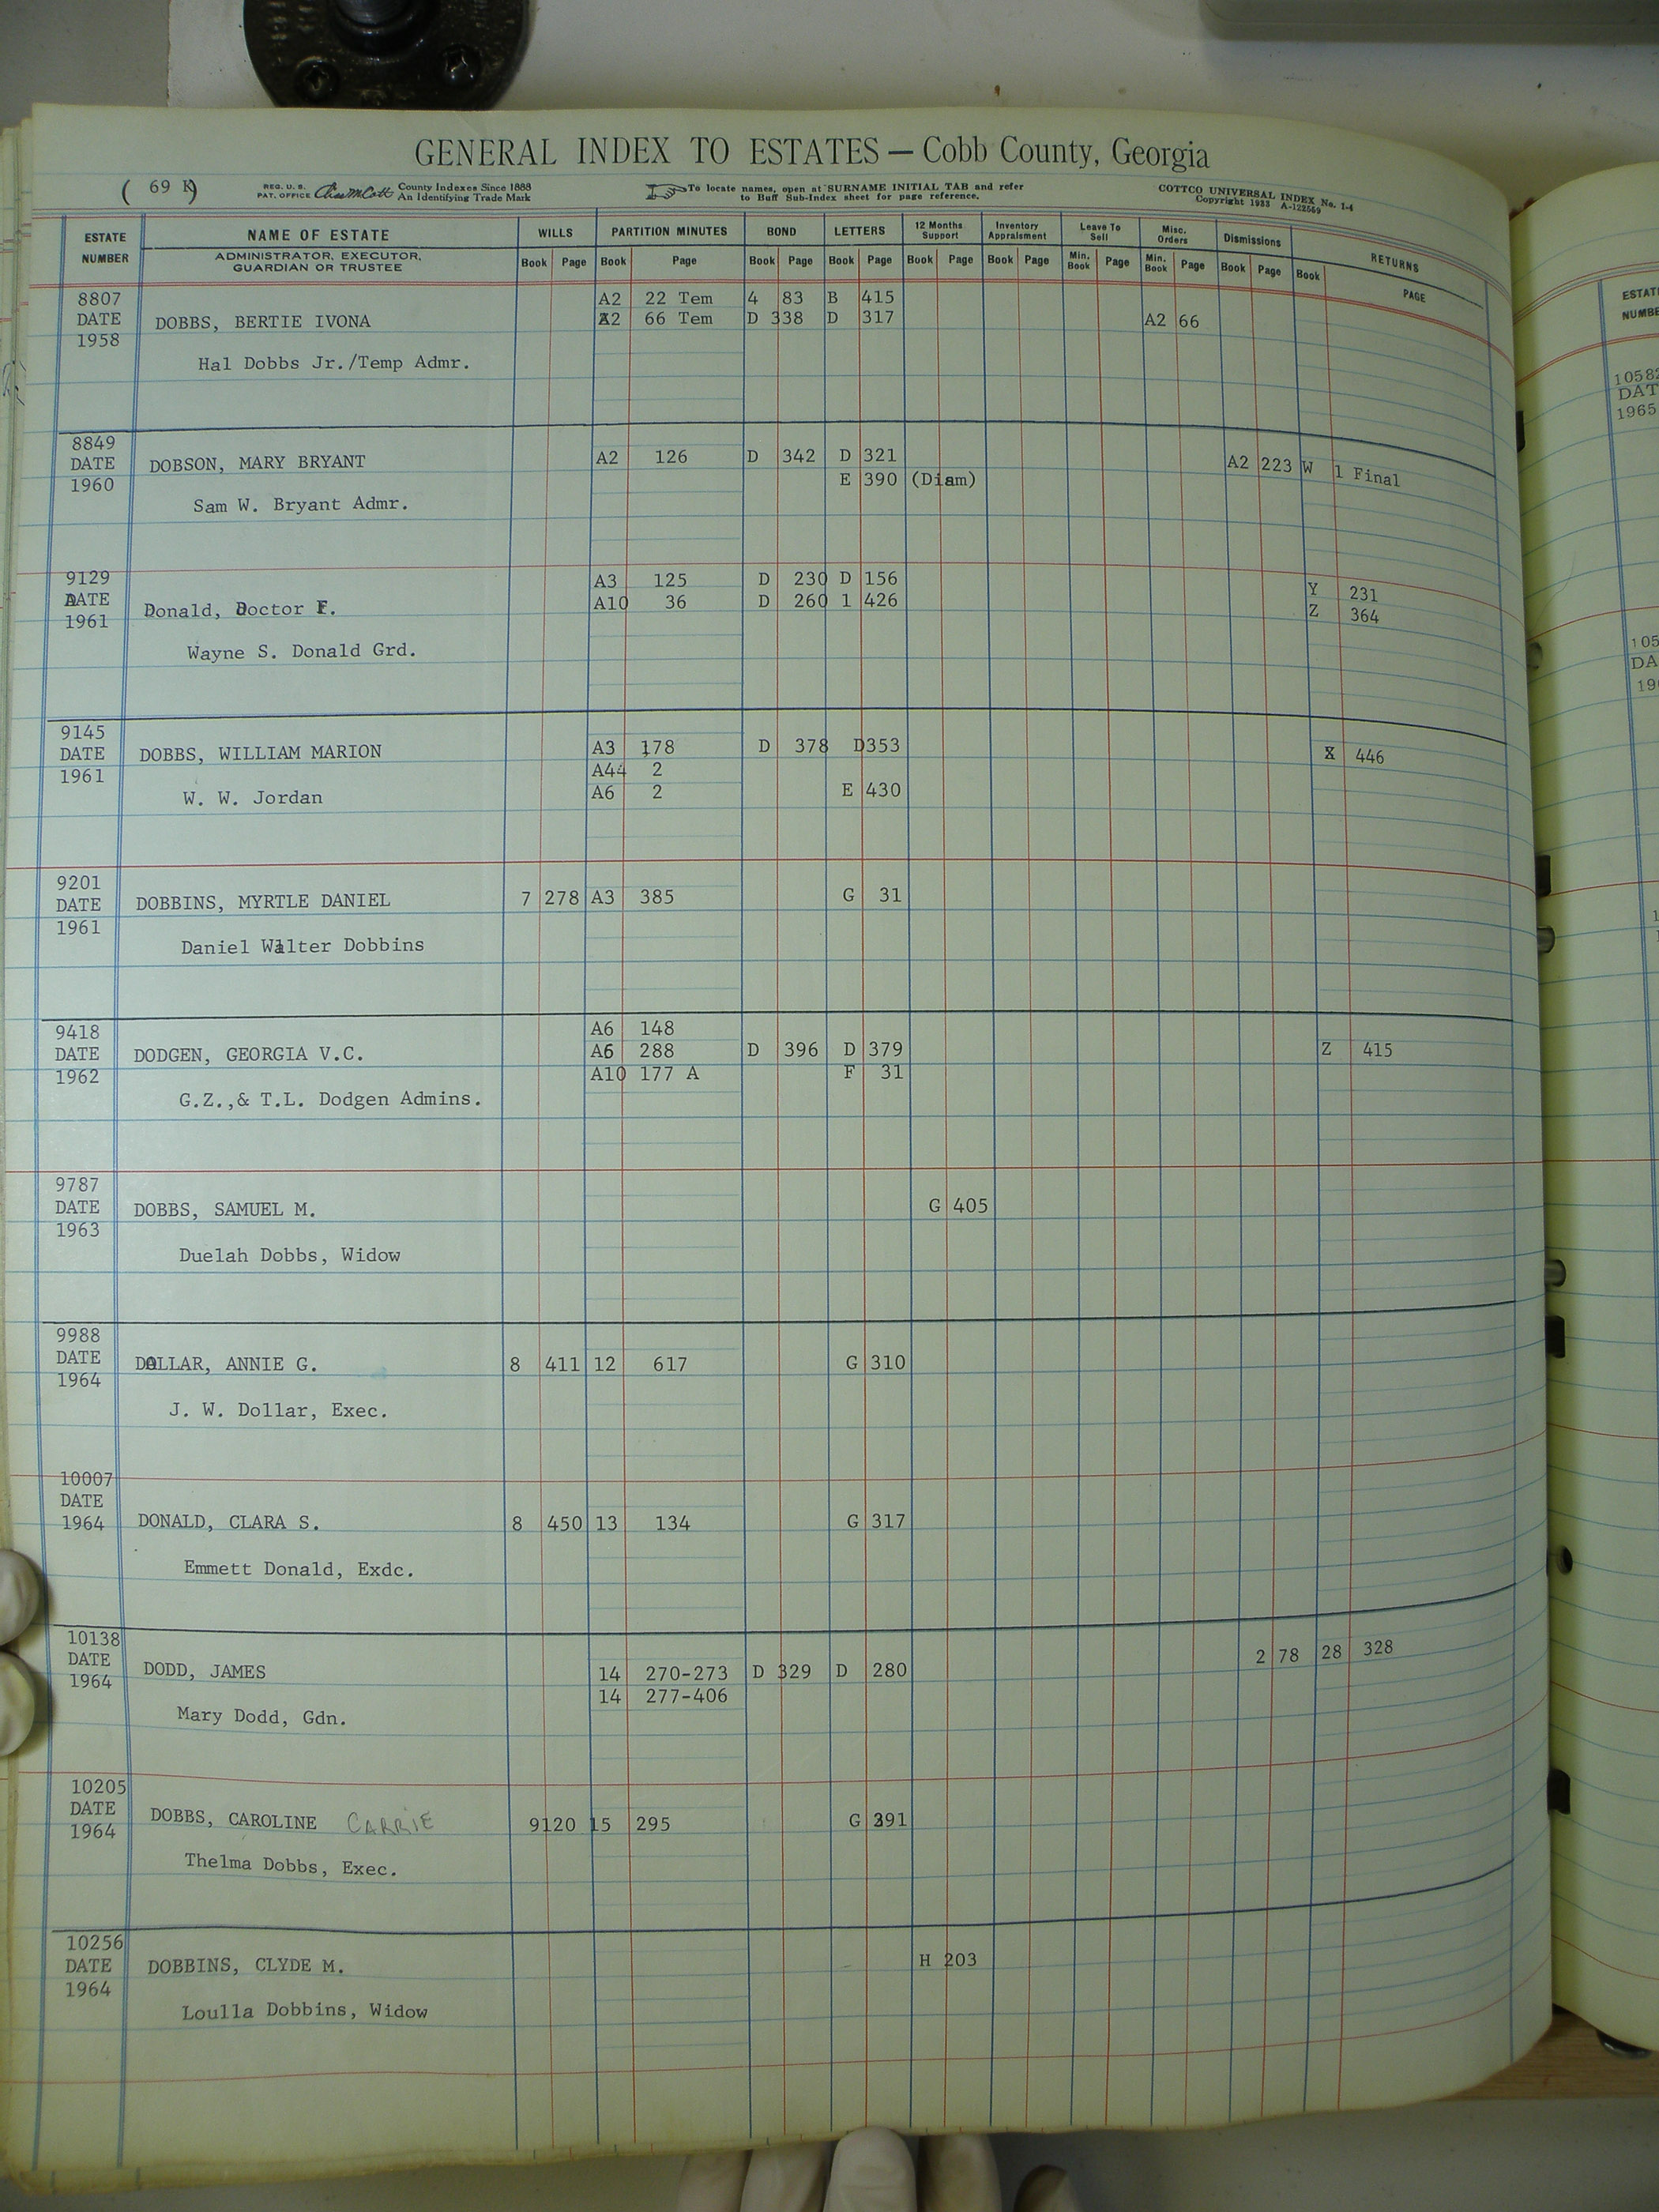 GENERAL INDEX TO ESTATES — Cobb County, Georgia
( 69 K)
REG. U. S. PAT. OFFICE County Indexes Since 1888 An Identifying Trade Mark
To locate names, open at SURNAME INITIAL TAB and refer to Buff Sub-Index sheet for page reference.
COTTCO UNIVERSAL INDEX No. 1-4
Copyright 1933 A-122559
ESTATE NUMBER NAME OF ESTATE WILLS PARTITION MINUTES BOND LETTERS 12 Months Support Inventory Appraisment Leave To Sell Misc. Orders Dismissions RETURNS
ADMINISTRATOR, EXECUTOR, GUARDIAN OR TRUSTEE Book Page Book Page Book Page Book Page Book Page Book Page Min. Book Page Min. Book Page Book Page Book PAGE
8807 A2 22 Tem 4 83 B 415
DATE DOBBS, BERTIE IVONA A2 66 Tem D 338 D 317 A2 66
1958
Hal Dobbs Jr./Temp Admr.
8849
DATE DOBSON, MARY BRYANT A2 126 D 342 D 321 A2 223 W 1 Final
1960 E 390 (Diam)
Sam W. Bryant Admr.
9129 A3 125 D 230 D 156 Y 231
DATE Donald, Doctor F. A10 36 D 260 1 426 Z 364
1961
Wayne S. Donald Grd.
9145
DATE DOBBS, WILLIAM MARION A3 178 D 378 D353 X 446
1961 A44 2
W. W. Jordan A6 2 E 430
9201
DATE DOBBINS, MYRTLE DANIEL 7 278 A3 385 G 31
1961
Daniel Walter Dobbins
9418 A6 148
DATE DODGEN, GEORGIA V.C. A6 288 D 396 D 379 Z 415
1962 A10 177 A F 31
G.Z.,& T.L. Dodgen Admins.
9787
DATE DOBBS, SAMUEL M. G 405
1963
Duelah Dobbs, Widow
9988
DATE DOLLAR, ANNIE G. 8 411 12 617 G 310
1964
J. W. Dollar, Exec.
10007
DATE
1964 DONALD, CLARA S. 8 450 13 134 G 317
Emmett Donald, Exdc.
10138
DATE DODD, JAMES 14 270-273 D 329 D 280 2 78 28 328
1964 14 277-406
Mary Dodd, Gdn.
10205
DATE DOBBS, CAROLINE CARRIE 9120 15 295 G 391
1964
Thelma Dobbs, Exec.
10256
DATE DOBBINS, CLYDE M. H 203
1964
Loulla Dobbins, Widow
ESTAT
NUMBE
1058
DAT
1965
105
DA
19